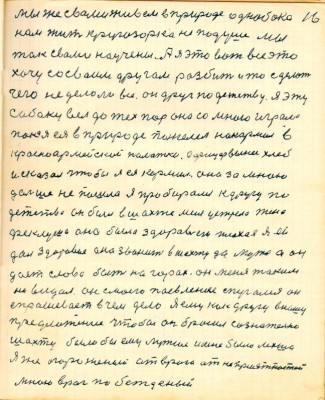 мы же с вами живем в природе однобока 16
нам жит кругозорка не подуше мы
так с вами научены. А я это вот все это
хочу со своим другам разбит и то сделат
чего не делоли вы. он друг по детьству. Я эту
Собаку вел до тех пор она со мною играла
покя ся в природе накормил в
Красноармейской палатки. хлеб
и сказал чтобы я ся кармил. она за мною
дальше не пошла Я пробирался к другу по
детьство он был в шахте меня встретила жена
она было здаровыем Я ей
дал здоровие она звонит в шахту да мужа а он
дает слово быть на горах. он меня таким
не видал. он с моего поевление спугался он
спрашивает в чем дело Я ему как другу внашу
предложение чтобы он бросил сознателно
шахту было бы ему лутше и мне было легше
Я же огороженый от врага от неприятностей
мною враг по бежденый